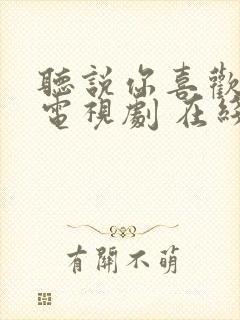 聽說你喜歡
電視劇 在綫
有關不萌